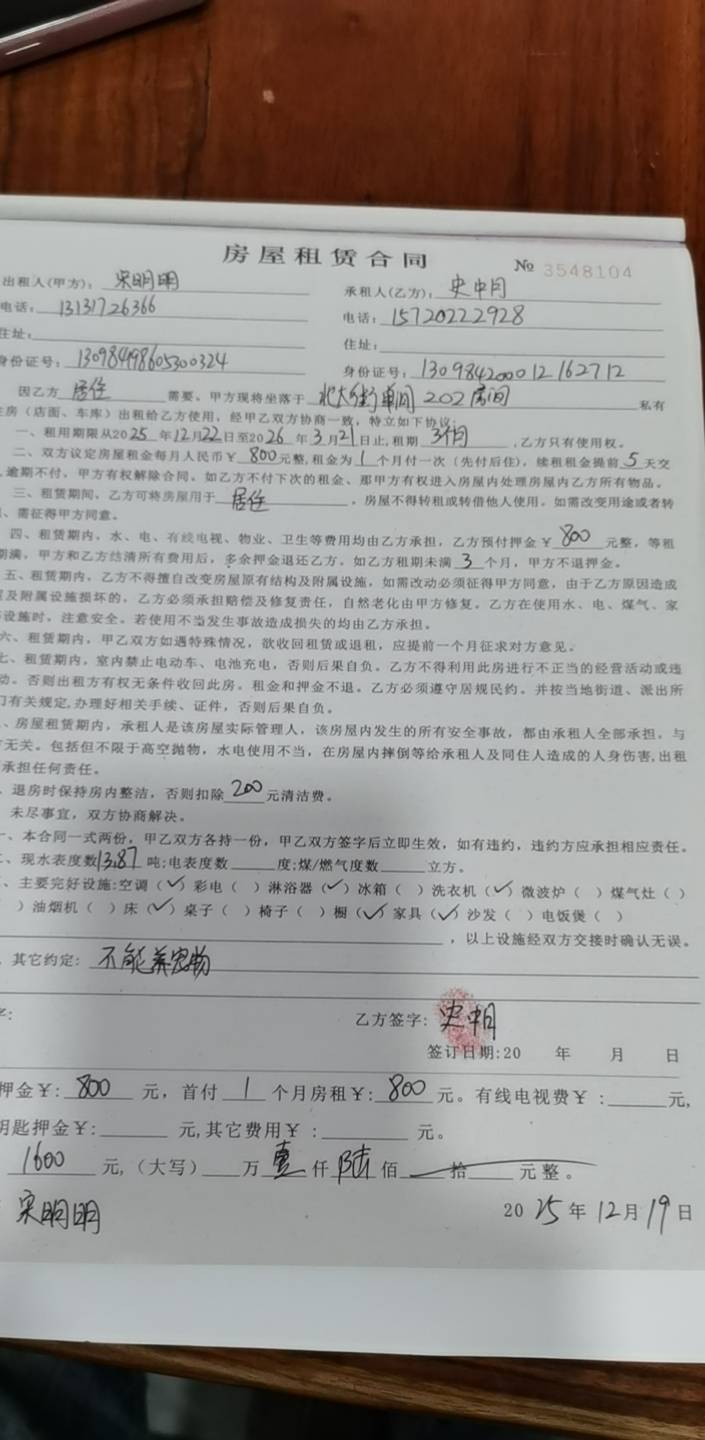 房屋租赁合同
№ 3548104
出租人(甲方): 宋明明 承租人(乙方): 史中月
电话: 13131726366 电话: 15720222928
住址: 住址:
身份证号: 130984198605300324 身份证号: 130984200012162712
因乙方 居住 需要。甲方现将坐落于 北大街单间202房间 私有
住房（店面、车库）出租给乙方使用，经甲乙双方协商一致，特立如下协议:
一、租用期限从2025年12月22日至2026年3月21日止,租期 3个月 ,乙方只有使用权。
二、双方议定房屋租金每月人民币￥ 800元整,租金为 1 个月付一次（先付后住），续租租金提前 5 天交
,逾期不付，甲方有权解除合同。如乙方不付下次的租金、那甲方有权进入房屋内处理房屋内乙方所有物品。
三、租赁期间，乙方可将房屋用于 居住 ，房屋不得转租或转借他人使用。如需改变用途或者转
、需征得甲方同意。
四、租赁期内，水、电、有线电视、物业、卫生等费用均由乙方承担，乙方预付押金￥ 800 元整，等租
期满，甲方和乙方结清所有费用后，多余押金退还乙方。如乙方租期未满 3 个月，甲方不退押金。
五、租赁期内，乙方不得擅自改变房屋原有结构及附属设施，如需改动必须征得甲方同意，由于乙方原因造成
屋及附属设施损坏的，乙方必须承担赔偿及修复责任，自然老化由甲方修复。乙方在使用水、电、煤气、家
等设施时，注意安全。若使用不当发生事故造成损失的均由乙方承担。
六、租赁期内，甲乙双方如遇特殊情况，欲收回租赁或退租，应提前一个月征求对方意见。
七、租赁期内，室内禁止电动车、电池充电，否则后果自负。乙方不得利用此房进行不正当的经营活动或违
动。否则出租方有权无条件收回此房。租金和押金不退。乙方必须遵守居规民约。并按当地街道、派出所
门有关规定,办理好相关手续、证件，否则后果自负。
、房屋租赁期内，承租人是该房屋实际管理人，该房屋内发生的所有安全事故，都由承租人全部承担，与
方无关。包括但不限于高空抛物，水电使用不当，在房屋内摔倒等给承租人及同住人造成的人身伤害,出租
承担任何责任。
、退房时保持房内整洁，否则扣除 200 元清洁费。
未尽事宜，双方协商解决。
一、本合同一式两份，甲乙双方各持一份，甲乙双方签字后立即生效，如有违约，违约方应承担相应责任。
二、现水表度数1387 吨;电表度数 度;煤/燃气度数 立方。
、主要完好设施:空调（✓）彩电（ ）淋浴器（✓）冰箱（ ）洗衣机（✓）微波炉（ ）煤气灶（ ）
）油烟机（ ）床（✓）桌子（ ）椅子（ ）橱（✓）家具（✓）沙发（ ）电饭煲（ ）
，以上设施经双方交接时确认无误。
、其它约定: 不能养宠物
字: 乙方签字: 史中月
签订日期:20 年 月 日
押金￥: 800 元，首付 1 个月房租￥: 800 元。有线电视费￥： 元,
钥匙押金￥: 元,其它费用￥： 元。
1600 元,（大写） 万 壹 仟 陆 佰 拾 元整。
宋明明 2025年12月19日